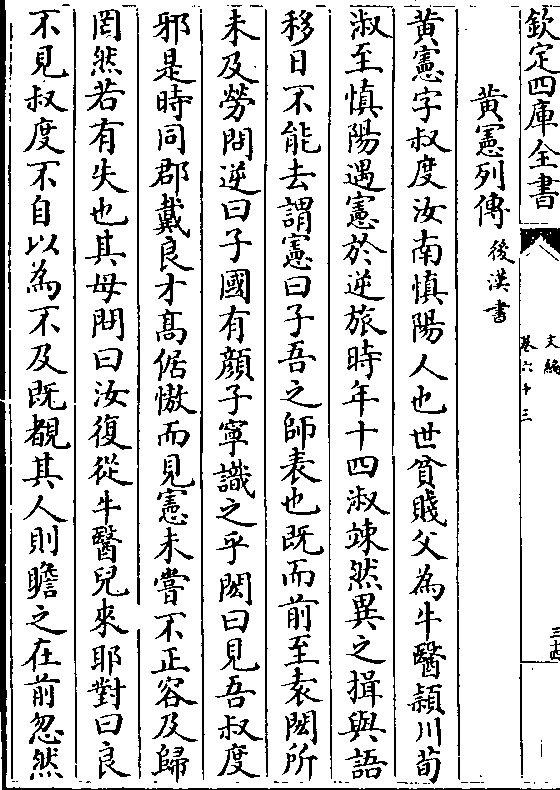 欽定四庫全書
文編
卷六十三
三十四
黃憲列傳 後漢書
黃憲字叔度汝南慎陽人也世貧賤父為牛醫潁川荀
淑至慎陽遇憲於逆旅時年十四淑竦然異之揖與語
移日不能去謂憲曰子吾之師表也既而前至袁閎所
未及勞問逆曰子國有顔子寧識之乎閎曰見吾叔度
邪是時同郡戴良才髙倨慠而見憲未嘗不正容及歸
罔然若有失也其母問曰汝復從牛醫兒來耶對曰良
不見叔度不自以為不及既覩其人則瞻之在前忽然